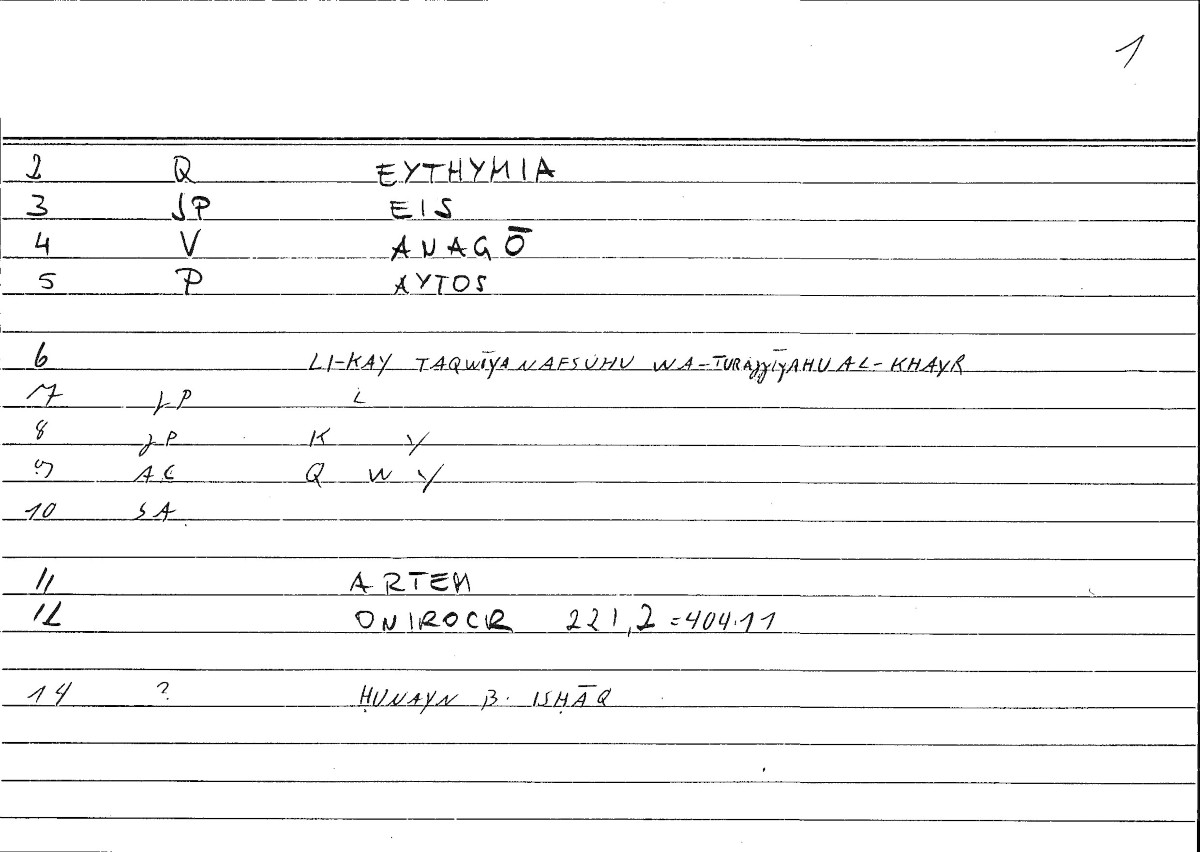 1
2 Q EYTHYMIA
3 JP EIS
4 V ANAGŌ
5 P AYTOS
6 LI-KAY TAQWĪYA NAFSUHU WA-TURAJJĪYAHU AL-KHAYR
7 JP L
8 JP K Y
9 AC Q W Y
10 SA
11 ARTEM
12 ONIROCR 221,2 = 404.11
14 ? ḤUNAYN B. ISḤĀQ